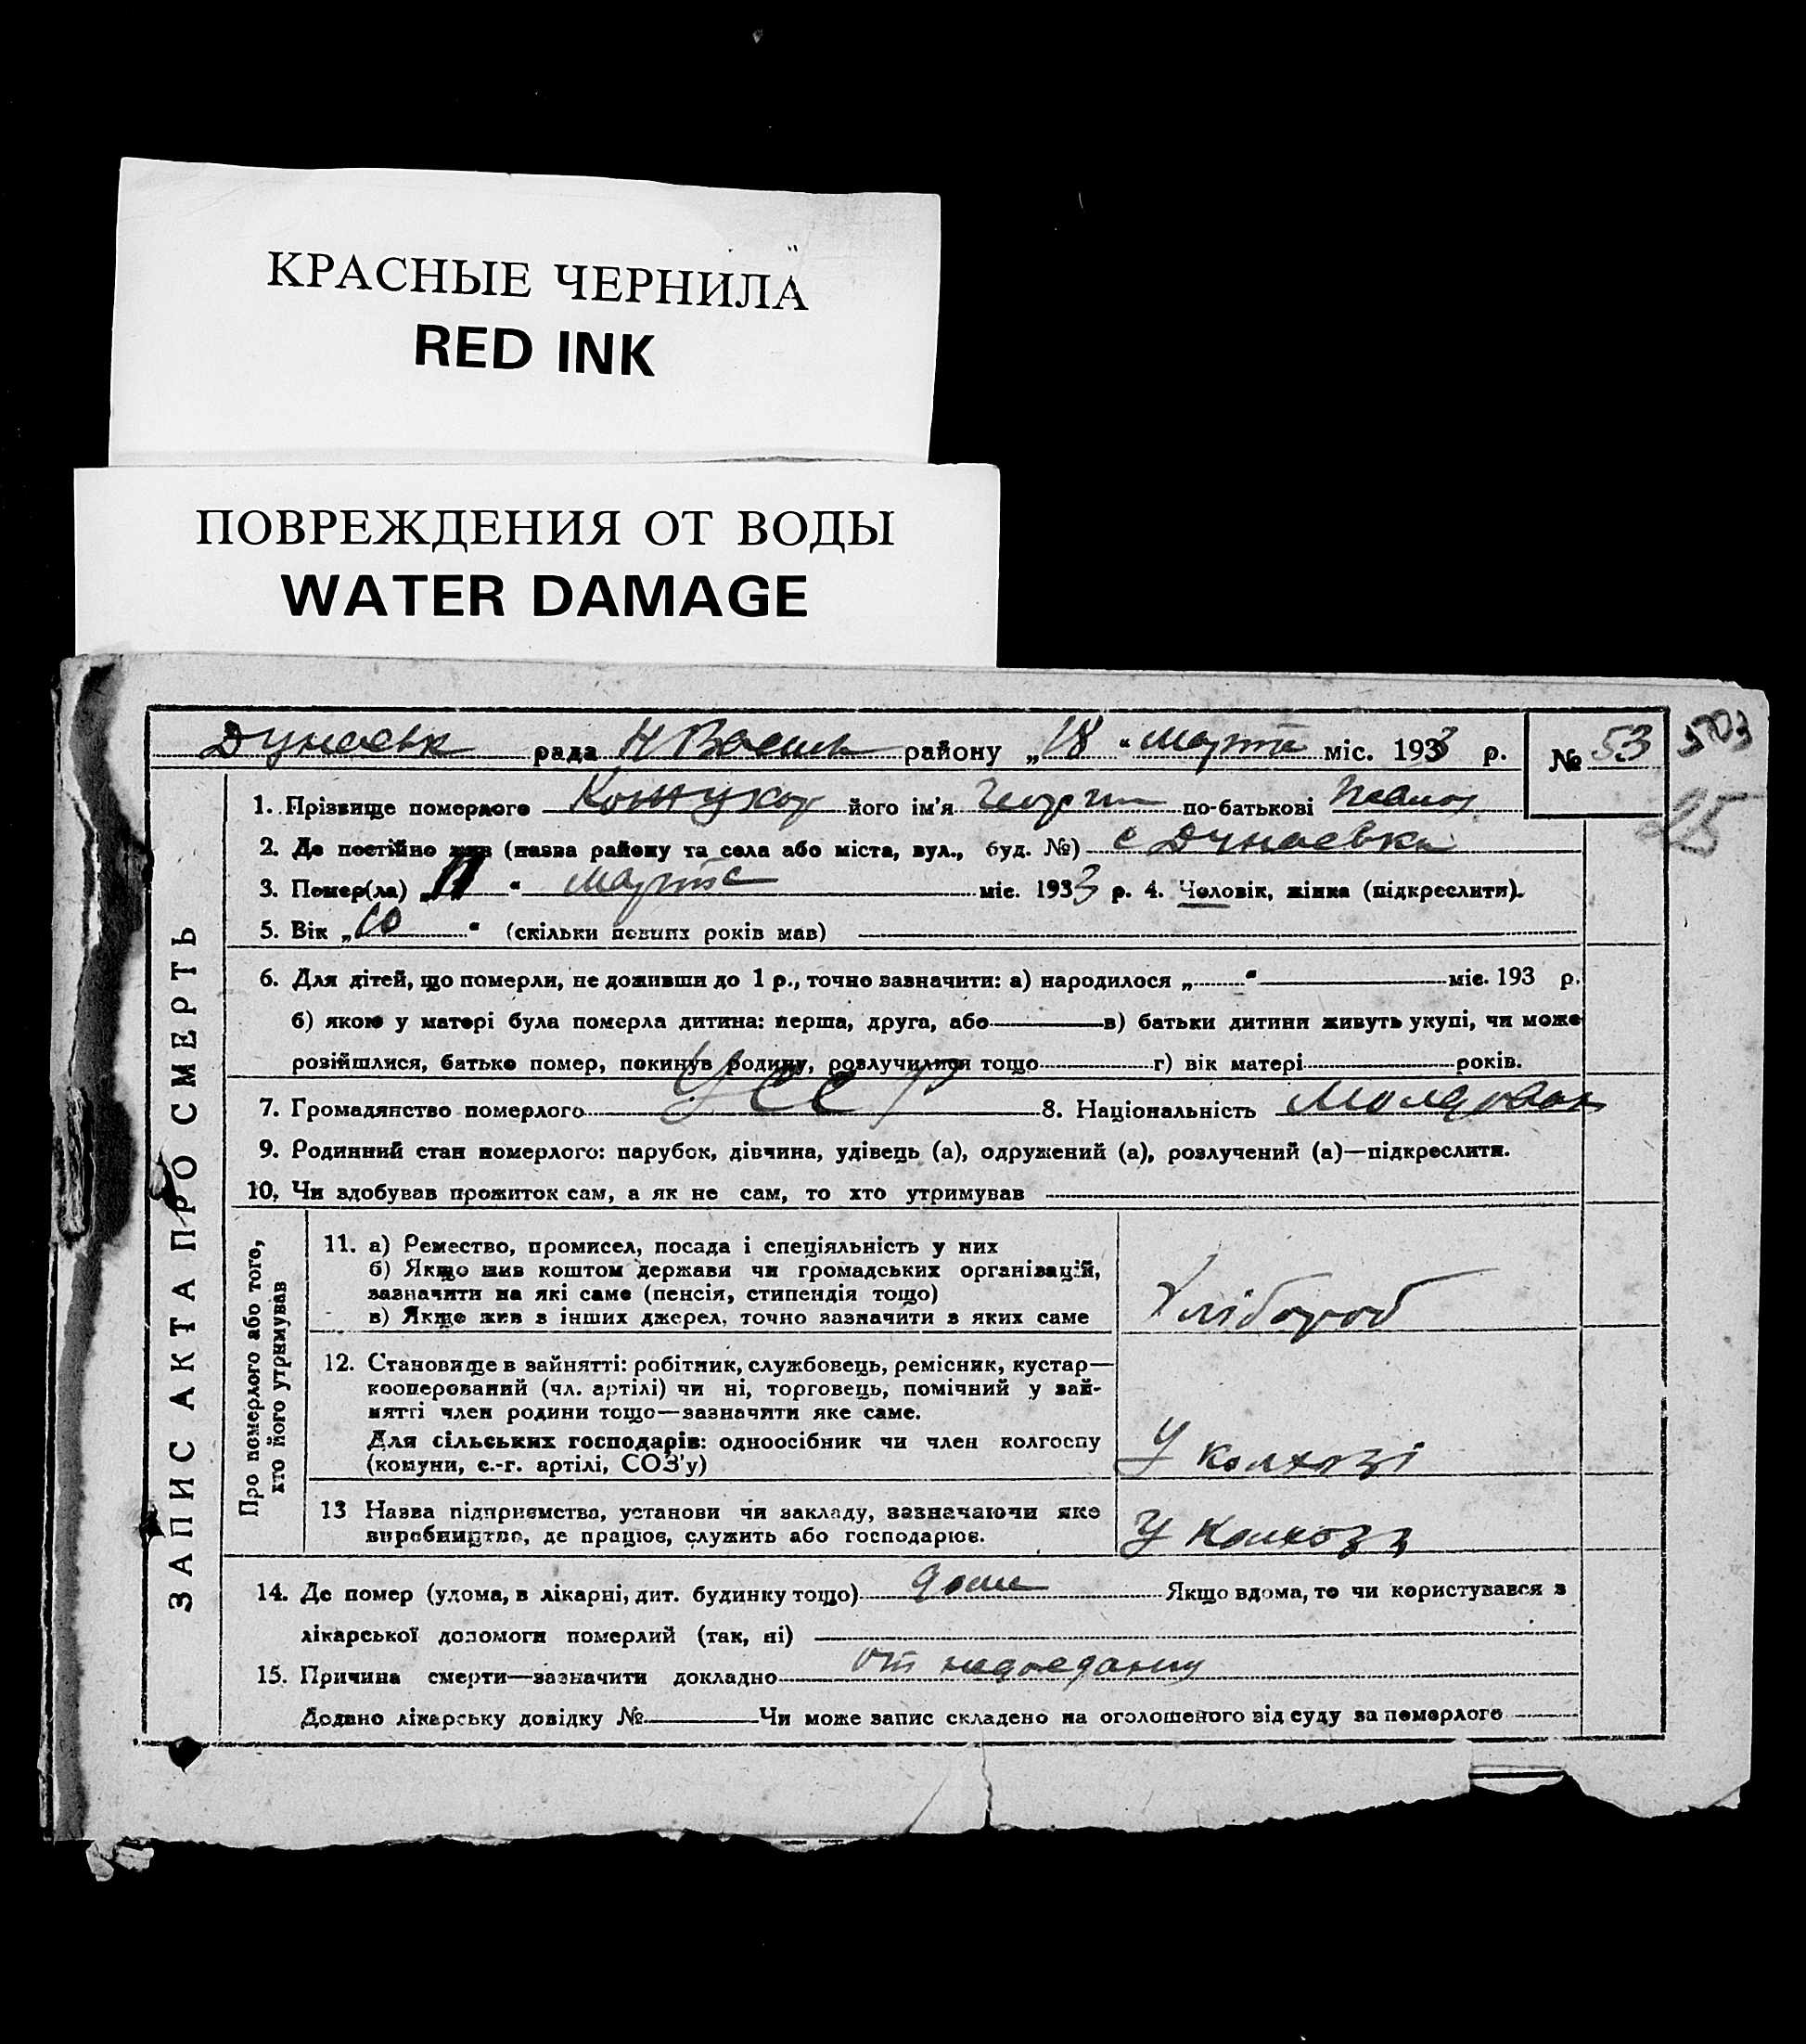 КРАСНЫЕ ЧЕРНИЛА
RED INK
ПОВРЕЖДЕНИЯ ОТ ВОДЫ
WATER DAMAGE
Дунаевк рада Н Васил району „18“ марта міс. 1933 р. № 53
503
25
ЗАПИС АКТА ПРО СМЕРТЬ
1. Прізвище померлого Кожухар його ім'я Георги по-батькові
2. Де постійно жив (назва району та села або міста, вул., буд. №) с Дунаевка
3. Помер(ла) „11“ марта міс. 1933 р. 4. Чоловік, жінка (підкреслити).
5. Вік „10“ (скільки повних років мав)
6. Для дітей, що померли, не доживши до 1 р., точно зазначити: а) народилося „ “ міс. 193 р.
б) якою у матері була померла дитина: перша, друга, або в) батьки дитини живуть укупі, чи може
розійшлися, батько помер, покинув родину, розлучилися тощо г) вік матері років.
7. Громадянство померлого УССР 8. Національність Молдован
9. Родинний стан померлого: парубок, дівчина, удівець (а), одружений (а), розлучений (а)—підкреслити.
10. Чи здобував прожиток сам, а як не сам, то хто утримував
Про померлого або того,
хто його утримував
11. а) Ремество, промисел, посада і спеціяльність у них
б) Якщо жив коштом держави чи громадських організацій,
зазначити на які саме (пенсія, стипендія тощо)
в) Якщо жив з інших джерел, точно зазначити з яких саме
Хлібороб
12. Становище в зайнятті: робітник, службовець, ремісник, кустар—
кооперований (чл. артілі) чи ні, торговець, помічний у зай-
нятті член родини тощо—зазначити яке саме.
Для сільських господарів: одноосібник чи член колгоспу
(комуни, с.-г. артілі, СОЗ'у)
У колхозі
13 Назва підприємства, установи чи закладу, зазначаючи яке
виробництво, де працює, служить або господарює.
У колхозі
14. Де помер (удома, в лікарні, дит. будинку тощо) дома Якщо вдома, то чи користувався з
лікарської допомоги померлий (так, ні)
15. Причина смерти—зазначити докладно От недоедания
Додано лікарську довідку № Чи може запис складено на оголошеного від суду за померлого